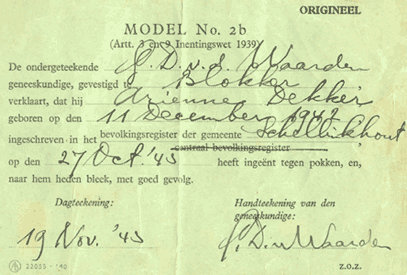 ORIGINEEL
MODEL No. 2b
(Artt. 3 en 9 Inentingswet 1939)
De ondergeteekende J. D. v. d. Waarden
geneeskundige, gevestigd te Blokker
verklaart, dat hij Arienne Dekker
geboren op den 11 December 1944
ingeschreven in het bevolkingsregister der gemeente Schellinkhout
centraal bevolkingsregister
op den 27 Oct. '45 heeft ingeënt tegen pokken, en,
naar hem heden bleek, met goed gevolg.
Dagteekening: Handteekening van den
geneeskundige:
19 Nov. '45 J. D. v Waarden
22055 - '40 z.o.z.